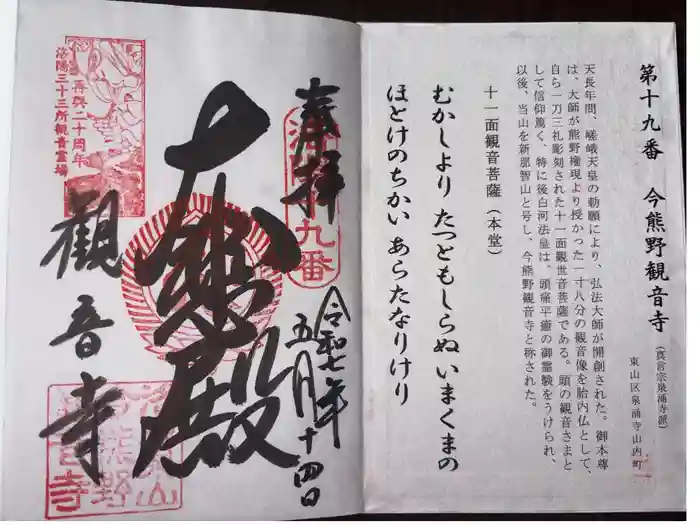 第十九番 今熊野観音寺
(真言宗泉涌寺派)
東山区泉涌寺山内町
天長年間、嵯峨天皇の勅願により、弘法大師が開創された。御本尊
は、大師が熊野権現より授かった一寸八分の観音像を胎内仏として、
自ら一刀三礼彫刻された十一面観世音菩薩である。頭の観音さまと
して信仰篤く、特に後白河法皇は、頭痛平癒の御霊験をうけられ、
以後、当山を新那智山と号し、今熊野観音寺と称された。
十一面観音菩薩(本堂)
むかしより たつともしらぬ いまくまの
ほとけのちかい あらたなりけり
奉拝
洛陽十九番
令和七年
五月十四日
大悲殿
観音寺
再興二十周年
洛陽三十三所観音霊場